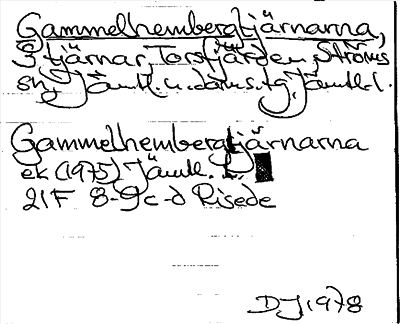 Gammelhembergtjärnarna,
3 tjärnar, Torsfjärden, Ströms
sn, Jämtl. n. doms. tg, Jämtl. l.
Gammelhembergtjärnarna
ek (1975) Jämtl. l.
21F 8-9c-d Risede
DJ 1978